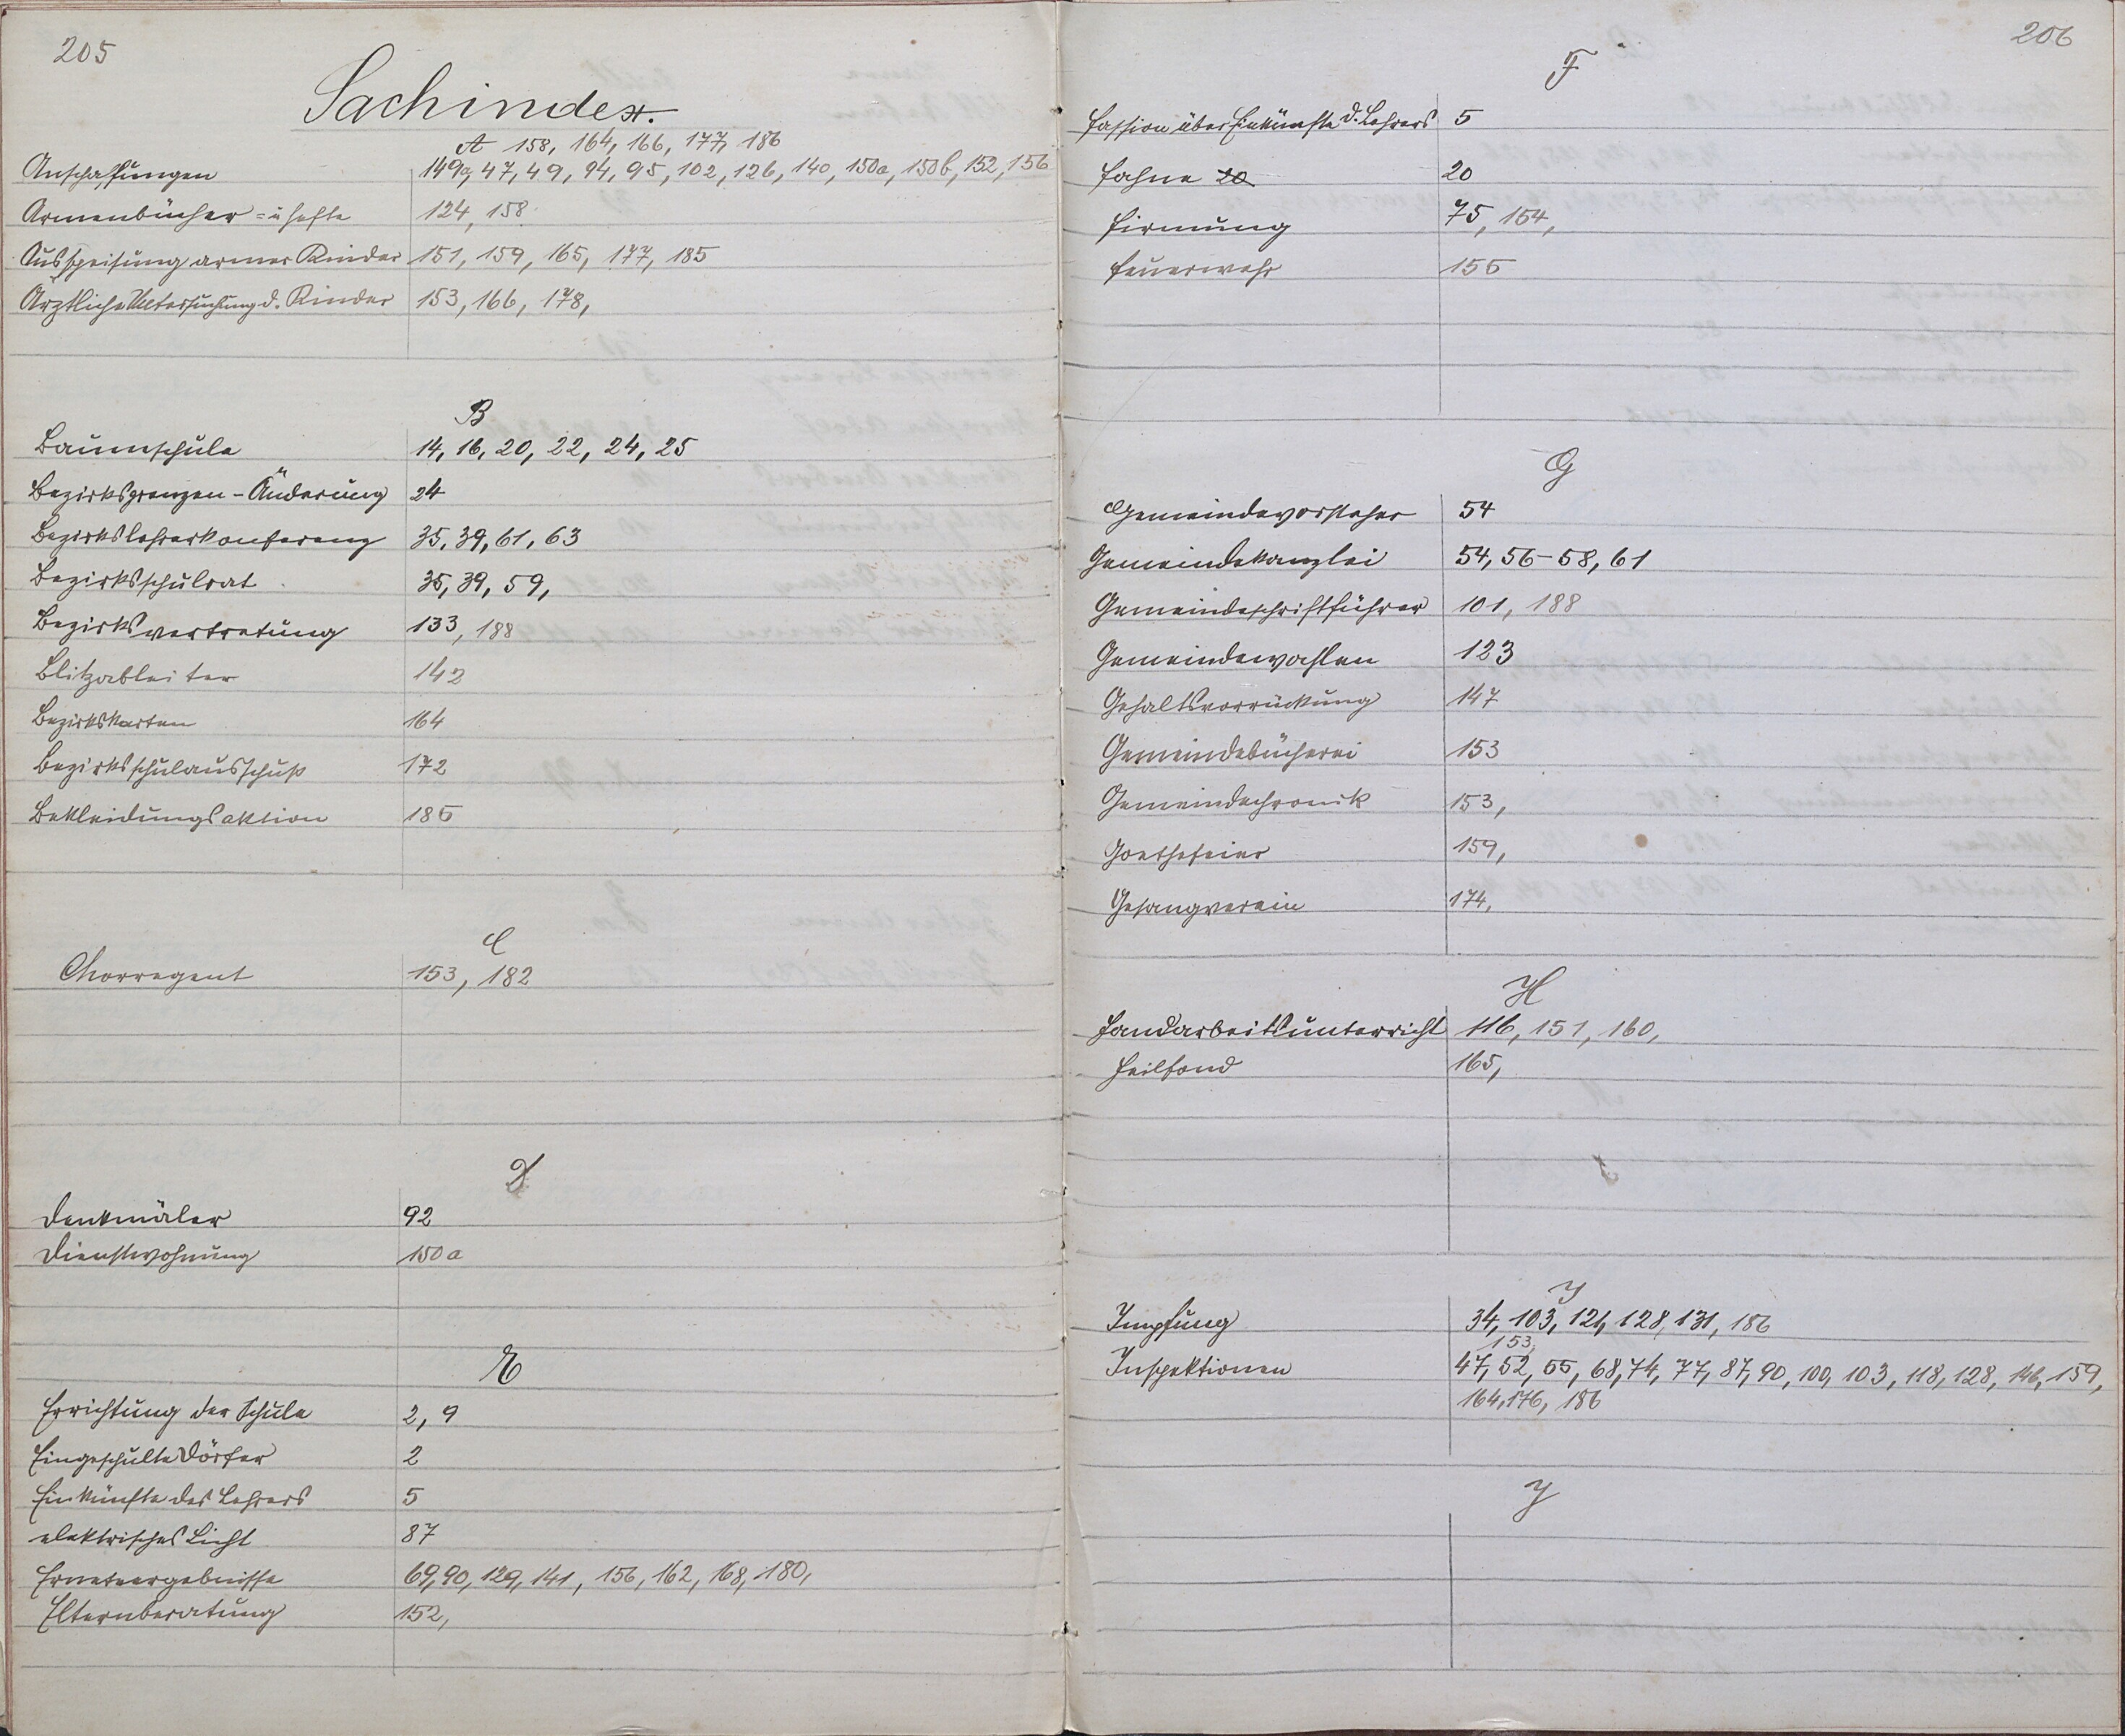 205
Sachindex.
A 158, 164, 166, 177, 186
Anschaffungen 149a, 47, 49, 94, 95, 102, 126, 140, 150a, 150b, 152, 156
Armenbücher = u hefte 124, 158
Ausspeisung armer Kinder 151, 159, 165, 177, 185
Ärztliche Untersuchung d. Kinder 153, 166, 178,
B
Baumschule 14, 16, 20, 22, 24, 25
Bezirksgrenzen-Änderung 24
Bezirkslehrerkonferenz 35, 39, 61, 63
Bezirksschulrat 35, 39, 59,
Bezirksvertretung 133, 188
Blitzableiter 142
Bezirkskarten 164
Bezirksschulausschuß 172
Bekleidungsaktion 185
C
Chorregent 153, 182
D
Denkmäler 92
Dienstwohnung 150a
E
Errichtung der Schule 2, 9
Eingeschulte Dörfer 2
Einkünfte des Lehrers 5
elektrisches Licht 87
Ernteergebnisse 69, 90, 129, 141, 156, 162, 168, 180,
Elternberatung 152,
206
F
Fassion über Einkünfte d. Lehrers 5
Fahne 20 20
Firmung 75, 154,
Feuerwehr 155
G
Gemeindevorsteher 54
Gemeindekanzlei 54, 56-58, 61
Gemeindeschriftführer 101, 188
Gemeindewahlen 123
Gehaltsvorrückung 147
Gemeindebücherei 153
Gemeindechronik 153,
Goethefeier 159,
Gesangverein 174,
H
Handarbeitsunterricht 116, 151, 160,
Heilfond 165,
I
Impfung 34, 103, 121, 128, 131, 186
153,
Inspektionen 47, 52, 55, 68, 74, 77, 87, 90, 100, 103, 118, 128, 146, 159,
164, 176, 186
J